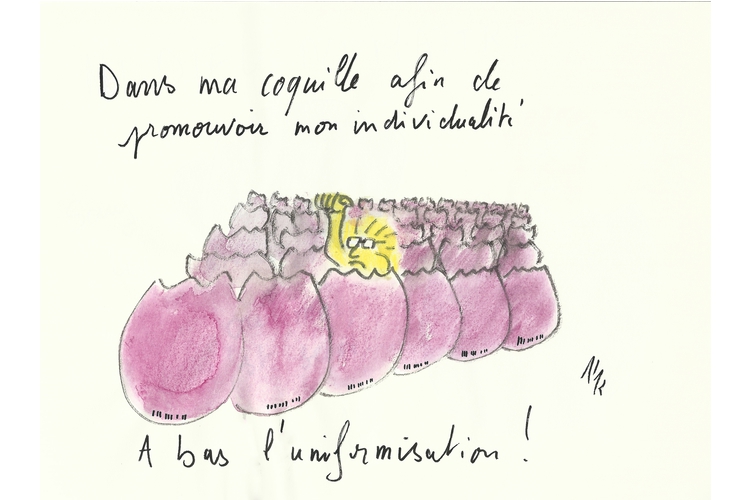 Dans ma coquille afin de
promouvoir mon individualité
A bas l'uniformisation !